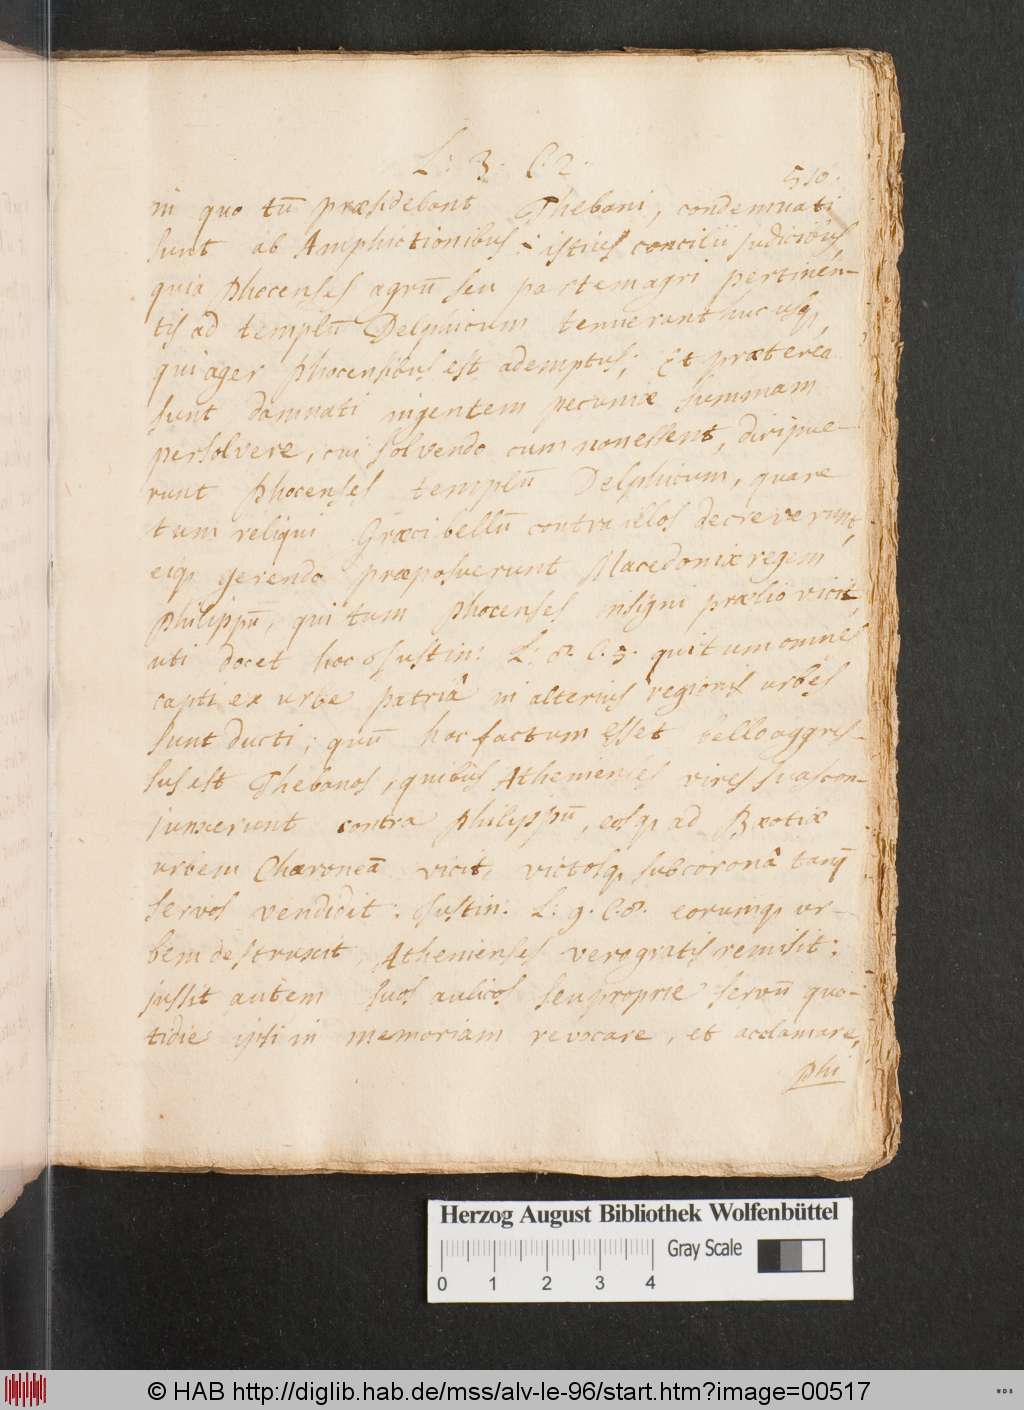 L: 3. C. 2.
510.
in quo tū præsidebant Thebani, condemnati
sunt ab Amphictionibus: istius concilii judicibus,
quia Phocenses agrū seu partem agri pertinen-
tis ad templū Delphicum tenuerunt hucusq,
qui ager Phocensibus est ademptus; Et præterea
sunt damnati ingentem pecuniæ summam
persolvere, cui solvendo cum non essent, diripue-
runt Phocenses templū Delphicum, quare
tum reliqui Græci bellū contra illos decreverunt,
eiq, gerendo præposuerunt Macedoniæ regem
Philippū, qui tum Phocenses insigni prælio vicit
uti docet hoc Justin: L: 8. C. 5. qui tum omnes
capti ex urbe patriâ in alterius regionis urbes
sunt ducti; quū hoc factum esset bello aggres-
sus est Thebanos, quibus Athenienses vires suas con-
junxerunt contra Philippū, eosq, ad Bæotiæ
urbem Chæroneā vicit, victosq, sub coronâ tanq
servos vendidit: Justin: L: 9. C. 8. eorumq, ur-
bem destruxit, Athenienses vero gratis remisit:
jussit autem suos aulicos seu proprie servū quo-
tidie ipsi in memoriam revocare, et acclamare,
Phi
Herzog August Bibliothek Wolfenbüttel
Gray Scale
0 1 2 3 4
© HAB http://diglib.hab.de/mss/alv-le-96/start.htm?image=00517